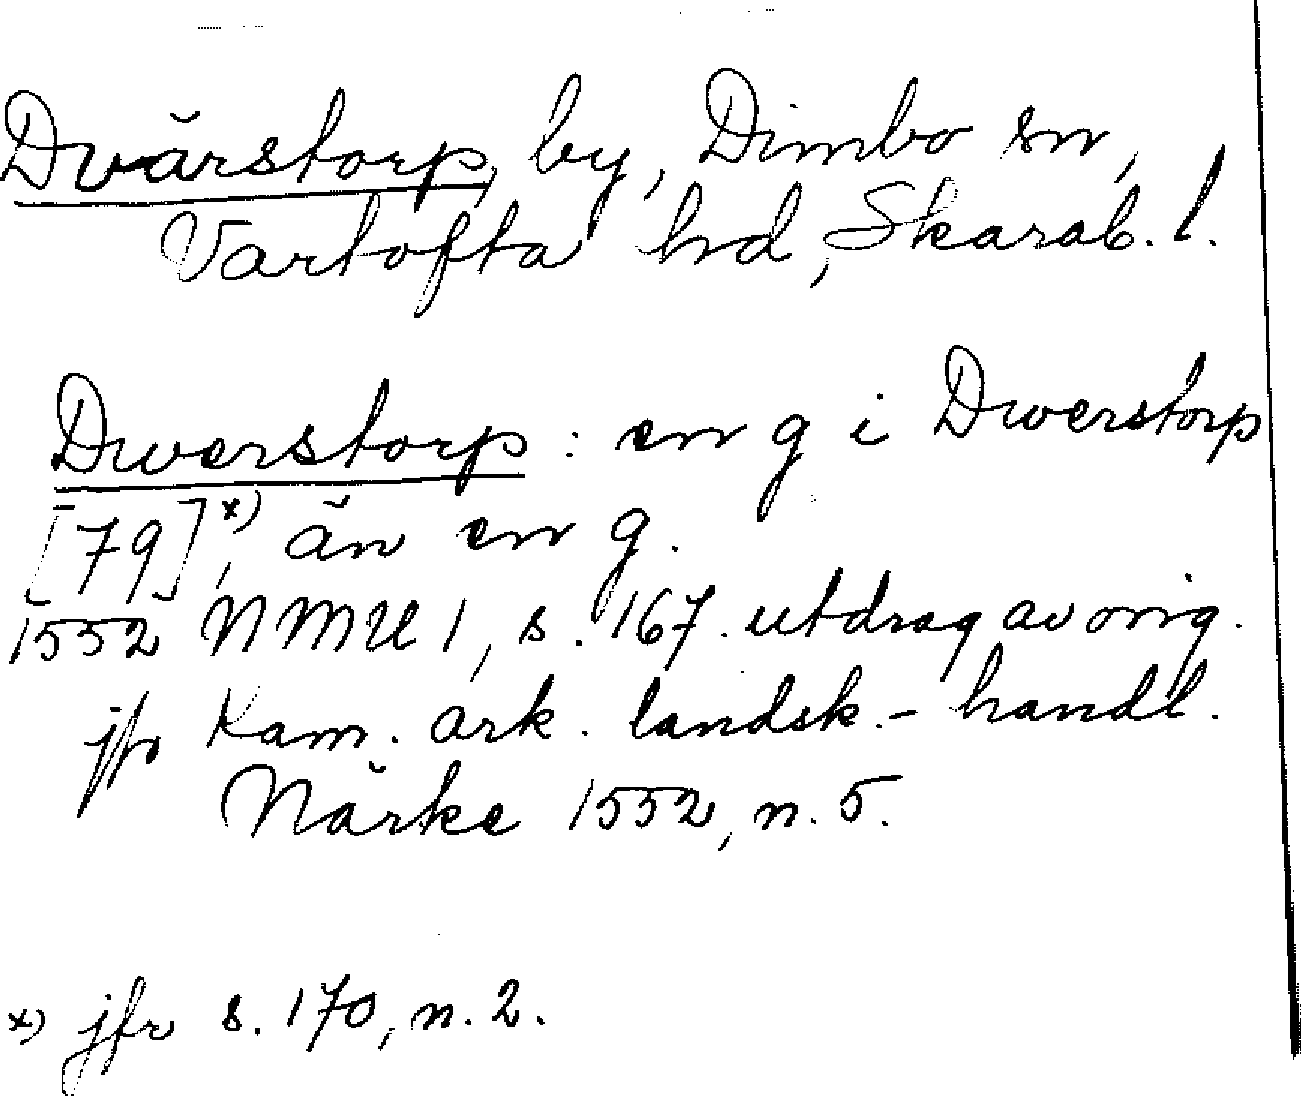 Dvärstorp, by, Dimbo sn,
Vartofta hd, Skarab. l.
Dwerstorp : en g i Dwerstorp
[79]x), än en g.
1552 NMU 1, s. 167. utdrag av orig.
jfr Kam. ark. landsk.-handl.
Närke 1552, n. 5.
x) jfr s. 170, n. 2.